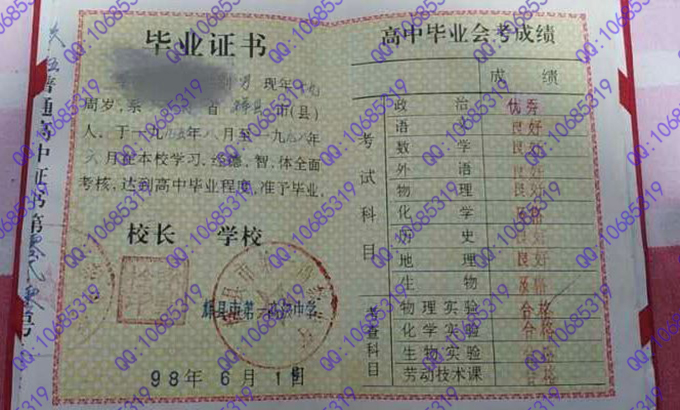 毕业证书
现年
周岁，系 省 辉县市(县)
人，于一九九五年八月至一九九八年
六月在本校学习，经德、智、体全面
考核，达到高中毕业程度，准予毕业。
校长 学校
辉县市第一高级中学
98年6月1日
普通高中证书第
高中毕业会考成绩
成绩
考试科目
政治 优秀
语文 良好
数学 良好
外语 良好
物理 良好
化学 及格
历史 良好
地理 良好
生物 及格
考查科目
物理实验 合格
化学实验 合格
生物实验 合格
劳动技术课 合格
QQ:10685319